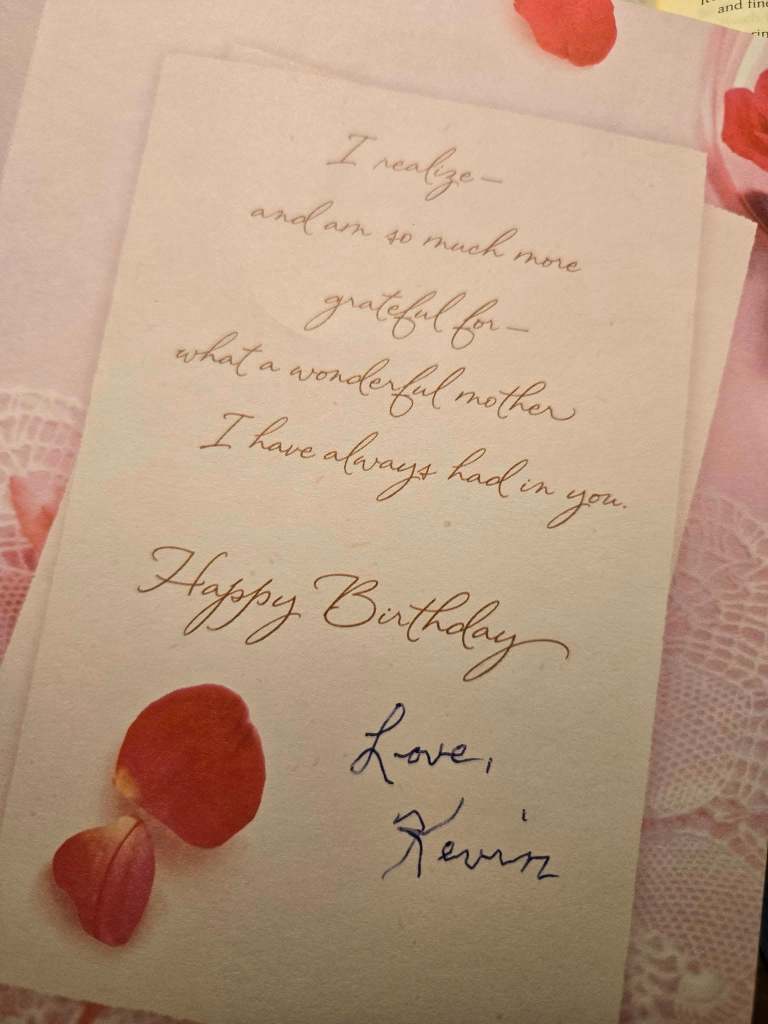 and fine
I realize—
and am so much more
grateful for—
what a wonderful mother
I have always had in you.
Happy Birthday
Love,
Kevin